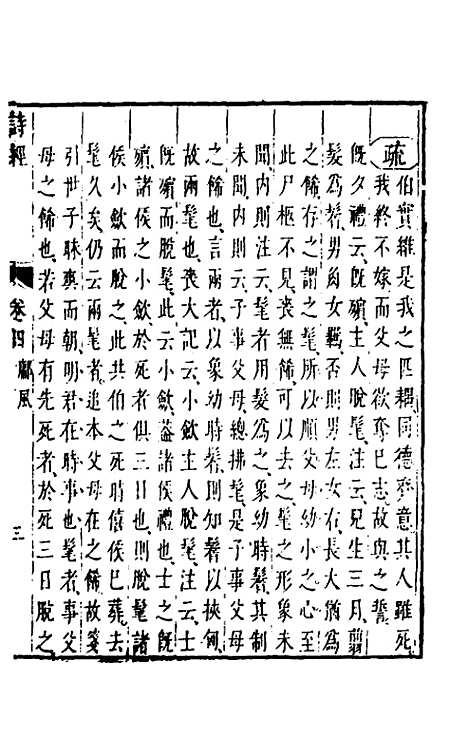 疏
伯實維是我之匹耦同德齊意其人雖死
我終不嫁而父母欲奪己志故與之誓
既夕禮云既殯主人脫髦注云兒生三月剪
髮爲鬌男角女羈否則男左女右長大猶爲
之餙存之謂之髦所以順父母幼小之心至
此尸柩不見喪無餙可以去之髦之形象未
聞内則注云髦者用髮爲之象幼時鬌其制
未聞内則云子事父母總拂髦是子事父母
之餙也言兩者以象幼時鬌則知鬌以挾囟
故兩髦也喪大記云小歛主人脫髦注云士
既殯而脫髦此云小歛蓋諸侯禮也士之既
殯諸侯之小歛於死者俱三日也則脫髦諸
侯小歛而脫之此共伯之死時僖侯已葬去
髦久矣仍云兩髦者追本父母在之餙故箋
引世子昧爽而朝明君在時事也髦者事父
母之餙也若父母有先死者於死三日脫之
詩經
卷四 鄘風
三